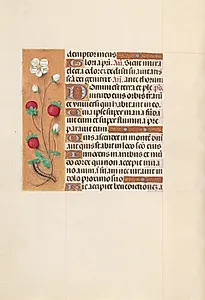 Gloria pri. An. Sicut mirra
electa odorem dedisti suauita
an. ante thorum
Domini est terra et ple ps
nitudo eius orbis terraru
et vniuersi qui habitant in eo
Quia ipse super maria funda
uit eum et super flumina pre
parauit eum
Quis ascendet in montem
aut quis stabit in loco sco eius
Innocens manibus et mu
do corde qui non accepit in ua
no anima sua nec iurauit in
dolo proximo suo
Hic accipiet benedictionez a